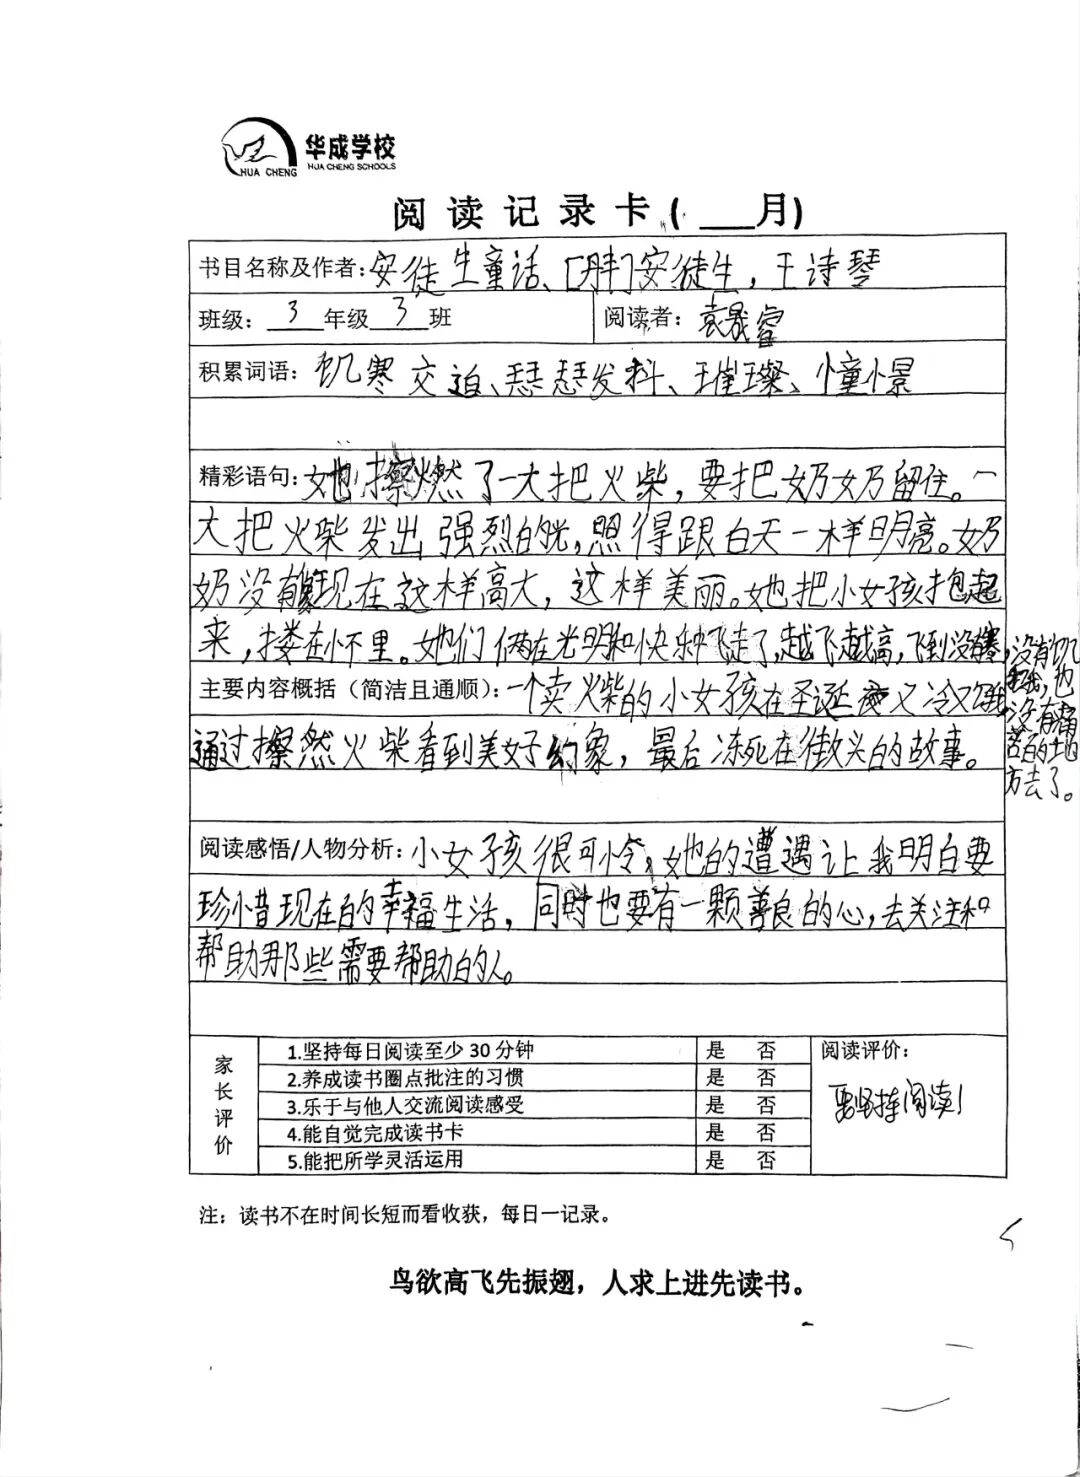 华成学校
HUA CHENG
HUA CHENG SCHOOLS
阅读记录卡(___月)
书目名称及作者:安徒生童话、[丹麦]安徒生,王诗琴
班级:3年级3班
阅读者:袁晟睿
积累词语:饥寒交迫、瑟瑟发抖、璀璨、憧憬
精彩语句:她擦燃了一大把火柴,要把奶奶留住。一
大把火柴发出强烈的光,照得跟白天一样明亮。奶
奶没有像现在这样高大,这样美丽。她把小女孩抱起
来,搂在怀里。她们俩在光明和快乐中飞走了,越飞越高,飞到没有寒
,没有饥
饿,也
没有痛
苦的地
方去了。
主要内容概括(简洁且通顺):一个卖火柴的小女孩在圣诞夜又冷又饿
通过擦然火柴看到美好幻象,最后冻死在街头的故事。
阅读感悟/人物分析:小女孩很可怜,她的遭遇让我明白要
珍惜现在的幸福生活,同时也要有一颗善良的心,去关注和
帮助那些需要帮助的人。
家长评价
1.坚持每日阅读至少30分钟 是 否
2.养成读书圈点批注的习惯 是 否
3.乐于与他人交流阅读感受 是 否
4.能自觉完成读书卡 是 否
5.能把所学灵活运用 是 否
阅读评价:
要坚持阅读!
注:读书不在时间长短而看收获,每日一记录。
鸟欲高飞先振翅,人求上进先读书。